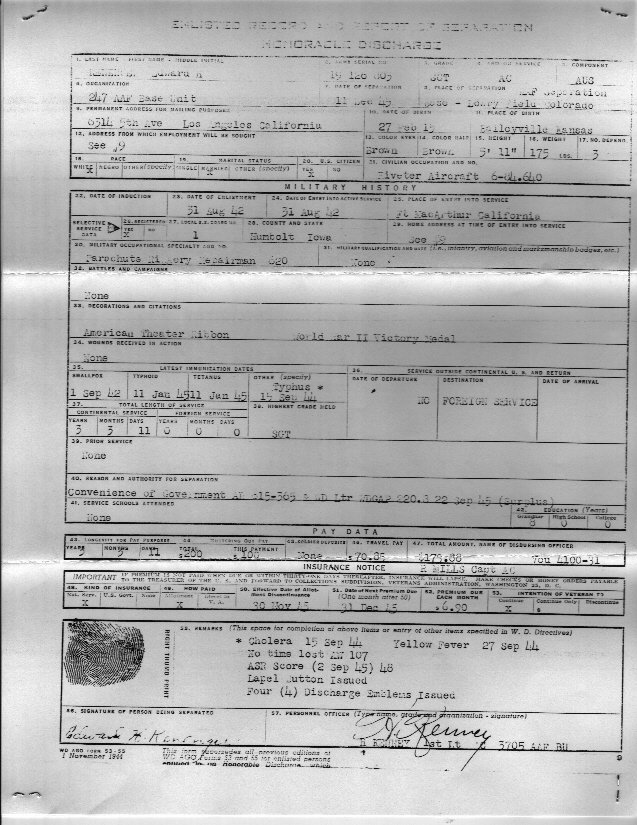 ENLISTED RECORD AND REPORT OF SEPARATION
HONORABLE DISCHARGE
1. LAST NAME - FIRST NAME - MIDDLE INITIAL 2. ARMY SERIAL NO. 3. GRADE 4. ARM OR SERVICE 5. COMPONENT
Edward H SGT AC AUS
6. ORGANIZATION 7. DATE OF SEPARATION 8. PLACE OF SEPARATION
247 AAF Base Unit 11 Dec 45 AAF Separation
Base - Lowry Field Colorado
9. PERMANENT ADDRESS FOR MAILING PURPOSES 10. DATE OF BIRTH 11. PLACE OF BIRTH
6314 5th Ave Los Angeles California 27 Feb 15 Baileyville Kansas
12. ADDRESS FROM WHICH EMPLOYMENT WILL BE SOUGHT 13. COLOR EYES 14. COLOR HAIR 15. HEIGHT 16. WEIGHT 17. NO. DEPEND.
See #9 Brown Brown 5' 11" 175 LBS. 3
18. RACE 19. MARITAL STATUS 20. U.S. CITIZEN 21. CIVILIAN OCCUPATION AND NO.
WHITE NEGRO OTHER (specify) SINGLE MARRIED OTHER (specify) YES NO
X X X Riveter Aircraft
MILITARY HISTORY
22. DATE OF INDUCTION 23. DATE OF ENLISTMENT 24. DATE OF ENTRY INTO ACTIVE SERVICE 25. PLACE OF ENTRY INTO SERVICE
31 Aug 42 31 Aug 42 Ft MacArthur California
SELECTIVE SERVICE DATA 26. REGISTERED YES NO 27. LOCAL S.S. BOARD NO. 28. COUNTY AND STATE 29. HOME ADDRESS AT TIME OF ENTRY INTO SERVICE
X 1 Humbolt Iowa See #9
30. MILITARY OCCUPATIONAL SPECIALTY AND NO. 31. MILITARY QUALIFICATION AND DATE (i.e., infantry, aviation and marksmanship badges, etc.)
Parachute Riggery Repairman 620 None
32. BATTLES AND CAMPAIGNS
None
33. DECORATIONS AND CITATIONS
American Theater Ribbon World War II Victory Medal
34. WOUNDS RECEIVED IN ACTION
None
35. LATEST IMMUNIZATION DATES 36. SERVICE OUTSIDE CONTINENTAL U. S. AND RETURN
SMALLPOX TYPHOID TETANUS OTHER (specify) DATE OF DEPARTURE DESTINATION DATE OF ARRIVAL
Typhus *
1 Sep 42 11 Jan 45 11 Jan 45 15 Sep 44 NO FOREIGN SERVICE
37. TOTAL LENGTH OF SERVICE 38. HIGHEST GRADE HELD
CONTINENTAL SERVICE FOREIGN SERVICE
YEARS MONTHS DAYS YEARS MONTHS DAYS
3 3 11 0 0 0 SGT
39. PRIOR SERVICE
None
40. REASON AND AUTHORITY FOR SEPARATION
Convenience of Government AR 615-365 & WD Ltr 22 Sep 45 (Surplus)
41. SERVICE SCHOOLS ATTENDED 42. EDUCATION (Years)
None Grammar High School College
PAY DATA
43. LONGEVITY FOR PAY PURPOSES 44. MUSTERING OUT PAY 45. SOLDIER DEPOSITS 46. TRAVEL PAY 47. TOTAL AMOUNT, NAME OF DISBURSING OFFICER
YEARS MONTHS DAYS TOTAL THIS PAYMENT
3 3 11 $200 $100 None $70.85 Vou 4100-31
INSURANCE NOTICE R MILLS Capt AC
IMPORTANT IF PREMIUM IS NOT PAID WHEN DUE OR WITHIN THIRTY-ONE DAYS THEREAFTER, INSURANCE WILL LAPSE. MAKE CHECKS OR MONEY ORDERS PAYABLE
TO THE TREASURER OF THE U. S. AND FORWARD TO COLLECTIONS SUBDIVISION, VETERANS ADMINISTRATION, WASHINGTON 25, D. C.
48. KIND OF INSURANCE 49. HOW PAID 50. Effective Date of Allotment Discontinuance 51. Date of Next Premium Due (One month after 50) 52. PREMIUM DUE EACH MONTH 53. INTENTION OF VETERAN TO
Nat. Serv. U.S. Govt. None Allotment Direct to V. A. Continue Continue Only Discontinue
X X 30 Nov 45 31 Dec 45 $6.90 X $
RIGHT THUMB PRINT
55. REMARKS (This space for completion of above items or entry of other items specified in W. D. Directives)
* Cholera 15 Sep 44 Yellow Fever 27 Sep 44
No time lost AW 107
ASR Score (2 Sep 45) 48
Lapel Button Issued
Four (4) Discharge Emblems Issued
56. SIGNATURE OF PERSON BEING SEPARATED 57. PERSONNEL OFFICER (Type name, grade and organization - signature)
Edward H
Kenney
H KENNEY 1st Lt 3705 AAF BU
WD AGO FORM 53-55
1 November 1944
This form supersedes all previous editions of
WD AGO Forms 53 and 55 for enlisted persons
entitled to an Honorable Discharge, which